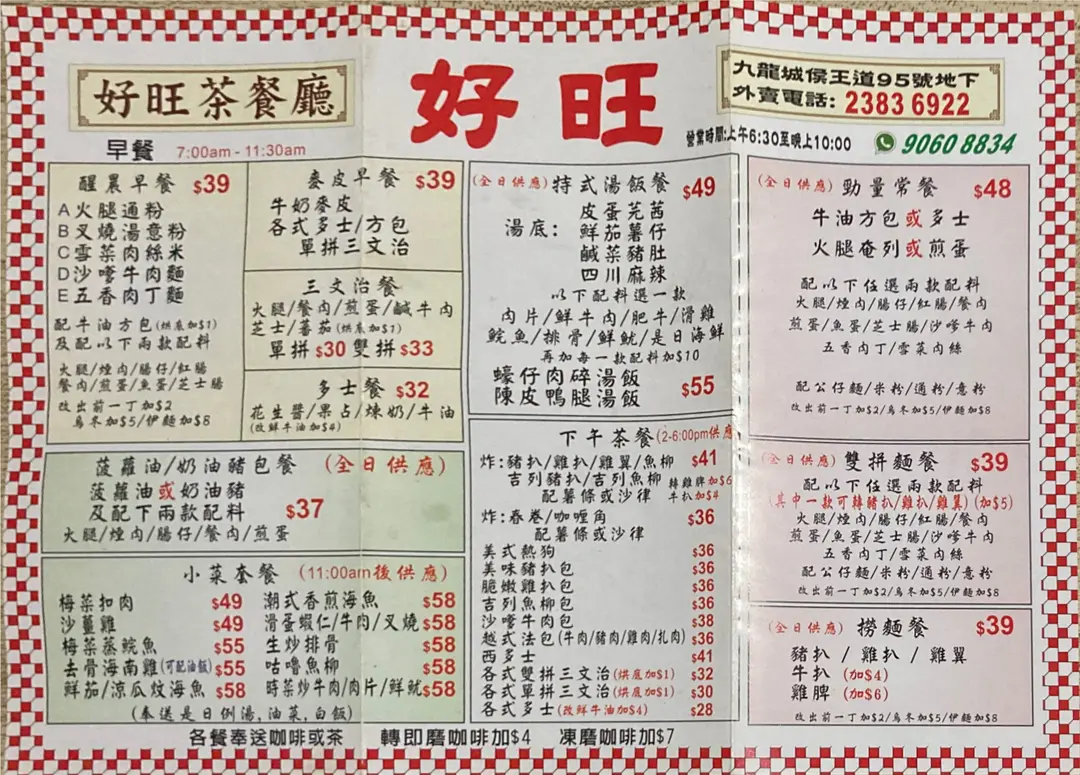 好旺茶餐廳
好旺
九龍城侯王道95號地下
外賣電話: 2383 6922
營業時間:上午6:30至晚上10:00
9060 8834
早餐 7:00am - 11:30am
醒晨早餐 $39
A火腿通粉
B叉燒湯意粉
C雪菜肉絲米
D沙嗲牛肉麵
E五香肉丁麵
配牛油方包(烘底加$1)
及配以下兩款配料
火腿/煙肉/腸仔/紅腸
餐肉/煎蛋/魚蛋/芝士腸
改出前一丁加$2
烏冬加$5/伊麵加$8
麥皮早餐 $39
牛奶麥皮
各式多士/方包
單拼三文治
三文治餐
火腿/餐肉/煎蛋/鹹牛肉
芝士/蕃茄(烘底加$1)
單拼$30 雙拼$33
多士餐 $32
花生醬/果占/煉奶/牛油
(改鮮牛油加$4)
菠蘿油/奶油豬包餐 (全日供應)
菠蘿油或奶油豬
及配下兩款配料 $37
火腿/煙肉/腸仔/餐肉/煎蛋
小菜套餐 (11:00am後供應)
梅菜扣肉 $49
沙薑雞 $49
梅菜蒸鯇魚 $55
去骨海南雞(可配油飯)$55
鮮茄/涼瓜炆海魚 $58
潮式香煎海魚 $58
滑蛋蝦仁/牛肉/叉燒 $58
生炒排骨 $58
咕嚕魚柳 $58
時菜炒牛肉/肉片/鮮魷 $58
(奉送是日例湯,油菜,白飯)
(全日供應) 特式湯飯餐 $49
湯底:
皮蛋芫茜
鮮茄薯仔
鹹菜豬肚
四川麻辣
以下配料選一款
肉片/鮮牛肉/肥牛/滑雞
鯇魚/排骨/鮮魷/是日海鮮
再加每一款配料加$10
蠔仔肉碎湯飯
陳皮鴨腿湯飯 $55
下午茶餐(2-6:00pm供應)
炸:豬扒/雞扒/雞翼/魚柳 $41
吉列豬扒/吉列魚柳 轉雞脾加$6
配薯條或沙律 牛扒加$4
炸:春卷/咖喱角 $36
配薯條或沙律
美式熱狗 $36
美味豬扒包 $36
脆嫩雞扒包 $36
吉列魚柳包 $36
沙嗲牛肉包 $38
越式法包(牛肉/豬肉/雞肉/扎肉) $36
西多士 $41
各式雙拼三文治(烘底加$1) $32
各式單拼三文治(烘底加$1) $30
各式多士(改鮮牛油加$4) $28
(全日供應) 勁量常餐 $48
牛油方包或多士
火腿奄列或煎蛋
配以下任選兩款配料
火腿/煙肉/腸仔/紅腸/餐肉
煎蛋/魚蛋/芝士腸/沙嗲牛肉
五香肉丁/雪菜肉絲
配公仔麵/米粉/通粉/意粉
改出前一丁加$2/烏冬加$5/伊麵加$8
(全日供應) 雙拼麵餐 $39
配以下任選兩款配料
(其中一款可轉豬扒/雞扒/雞翼) (加$5)
火腿/煙肉/腸仔/紅腸/餐肉
煎蛋/魚蛋/芝士腸/沙嗲牛肉
五香肉丁/雪菜肉絲
配公仔麵/米粉/通粉/意粉
改出前一丁加$2/烏冬加$5/伊麵加$8
(全日供應) 撈麵餐 $39
豬扒 / 雞扒 / 雞翼
牛扒 (加$4)
雞脾 (加$6)
改出前一丁加$2/烏冬加$5/伊麵加$8
各餐奉送咖啡或茶 轉即磨咖啡加$4 凍磨咖啡加$7